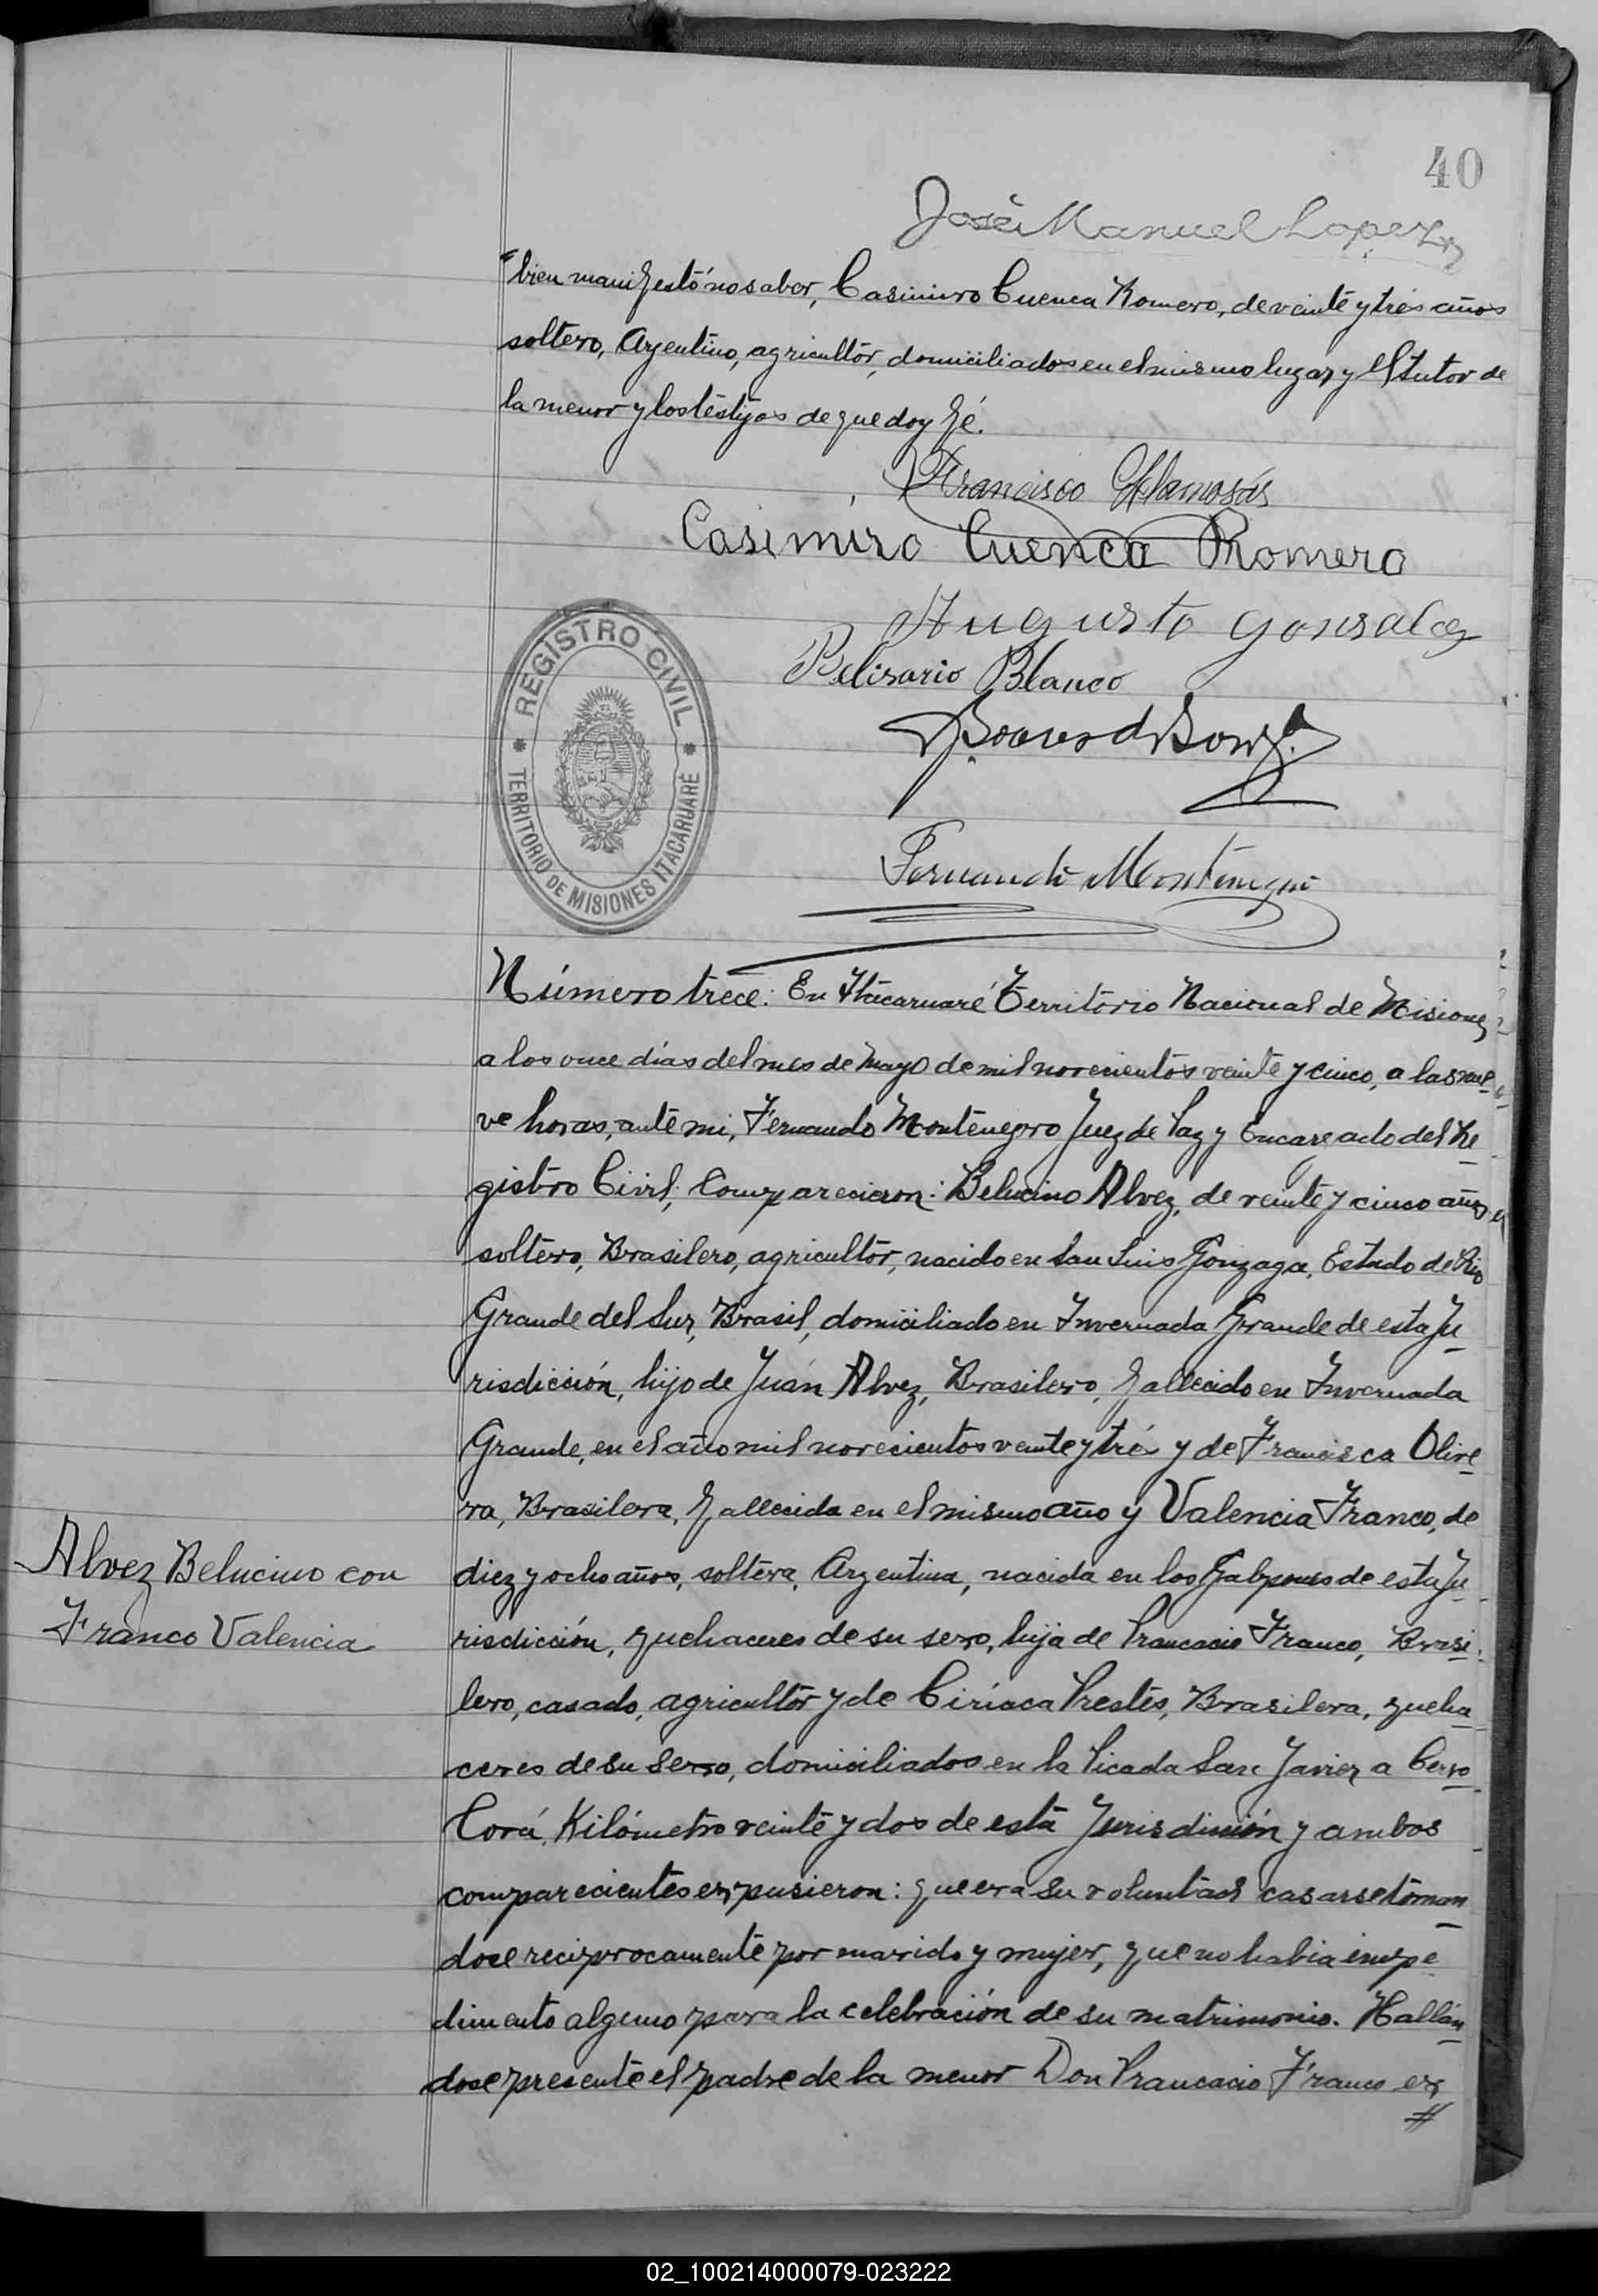 40
José Manuel Lopez
"bien manifestó no saber, Casimiro Cuenca Romero, de veinte y tres años
soltero, Argentino, agricultor, domiciliados en el mismo lugar y el tutor de
la menor y los testigos de que doy fé.
Francisco
Casimiro Cuenca Romero
Augusto Gonsalez
Belisario Blanco
Fernando Montenegro
REGISTRO CIVIL
TERRITORIO DE MISIONES ITACARUARÉ
Número trece: En Itacaruaré Territorio Nacional de Misiones
a los once días del mes de Mayo de mil novecientos veinte y cinco, a las nue
ve horas, ante mi, Fernando Montenegro Juez de Paz y Encargado del Re
gistro Civil; Comparecieron: Belucino Alvez, de veinte y cinco años,
soltero, Brasilero, agricultor, nacido en San Luis Gonzaga, Estado de Rio
Grande del Sur, Brasil, domiciliado en Invernada Grande de esta Ju
risdicción, hijo de Juán Alvez, Brasilero, fallecido en Invernada
Grande, en el año mil novecientos veinte y tré y de Francisca Olive
ra, Brasilera, fallecida en el mismo año y Valencia Franco, de
diez y ocho años, soltera, Argentina, nacida en los Galpones de esta Ju
risdicción, quehaceres de su sexo, hija de Prancacio Franco, Brasi
lero, casado, agricultor y de Ciríaca Prestes, Brasilera, queha
ceres de su sexo, domiciliados en la Picada San Javier a Cerro
Corá, Kilómetro veinte y dos de esta Jurisdicción y ambos
comparecientes expusieron: que era su voluntad casarse toman
dose reciprocamente por marido y mujer, que no habia impe
dimento alguno para la celebración de su matrimonio. Hallán
dose presente el padre de la menor Don Prancacio Franco ex
Alvez Belucino con
Franco Valencia
02_100214000079-023222